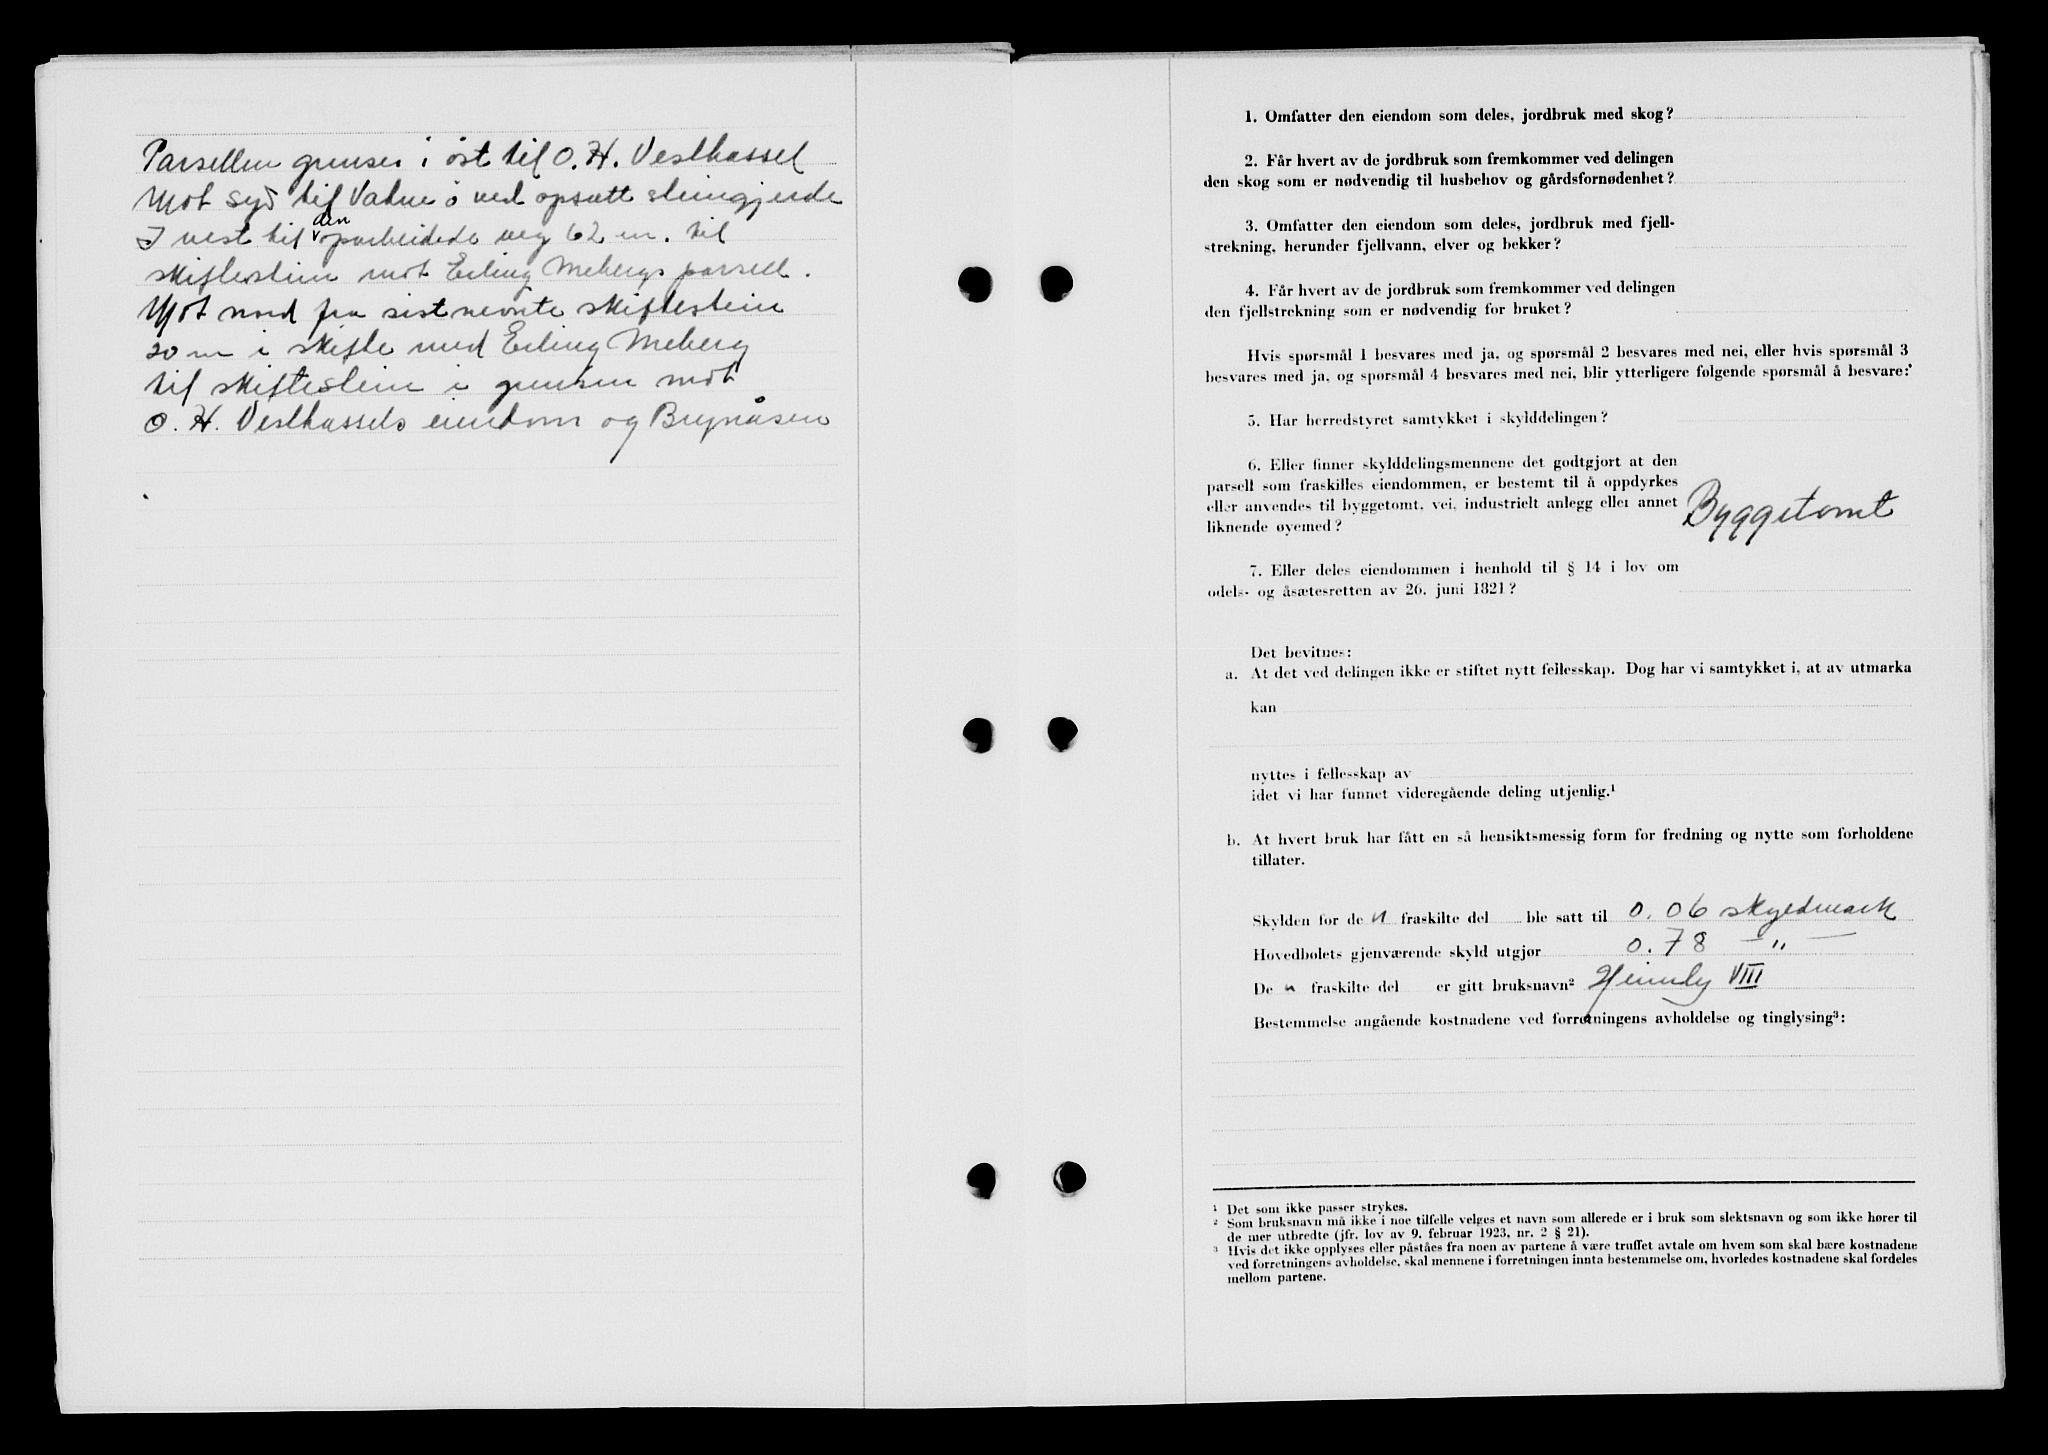 Parsellen grenser i øst til O. H. Vesthassel
Mot syd til Vatne å ved opsatt steingjerde
I vest til den oparbeidede veg 62 m. til
skiftestein mot Erling Mebergs parsell.
Mot nord fra sist nevnte skiftestein
20 m i skifte med Erling Meberg
til skiftestein i grensen mot
O. H. Vesthassels eiendom og Brynåsen
1. Omfatter den eiendom som deles, jordbruk med skog?
2. Får hvert av de jordbruk som fremkommer ved delingen
den skog som er nødvendig til husbehov og gårdsfornødenhet?
3. Omfatter den eiendom som deles, jordbruk med fjell-
strekning, herunder fjellvann, elver og bekker?
4. Får hvert av de jordbruk som fremkommer ved delingen
den fjellstrekning som er nødvendig for bruket?
Hvis spørsmål 1 besvares med ja, og spørsmål 2 besvares med nei, eller hvis spørsmål 3
besvares med ja, og spørsmål 4 besvares med nei, blir ytterligere følgende spørsmål å besvare:
5. Har herredstyret samtykket i skylddelingen?
6. Eller finner skylddelingsmennene det godtgjort at den
parsell som fraskilles eiendommen, er bestemt til å oppdyrkes
eller anvendes til byggetomt, vei, industrielt anlegg eller annet
liknende øyemed?
Byggetomt
7. Eller deles eiendommen i henhold til § 14 i lov om
odels- og åsætesretten av 26. juni 1821?
Det bevitnes:
a. At det ved delingen ikke er stiftet nytt fellesskap. Dog har vi samtykket i, at av utmarka
kan
nyttes i fellesskap av
idet vi har funnet videregående deling utjenlig.¹
b. At hvert bruk har fått en så hensiktsmessig form for fredning og nytte som forholdene
tillater.
Skylden for de n fraskilte del ble satt til 0.06 skyldmark
Hovedbølets gjenværende skyld utgjør 0.78 — „ —
De n fraskilte del er gitt bruksnavn² Heimly VIII
Bestemmelse angående kostnadene ved forretningens avholdelse og tinglysing³:
¹ Det som ikke passer strykes.
² Som bruksnavn må ikke i noe tilfelle velges et navn som allerede er i bruk som slektsnavn og som ikke hører til
de mer utbredte (jfr. lov av 9. februar 1923, nr. 2 § 21).
³ Hvis det ikke opplyses eller påståes fra noen av partene å være truffet avtale om hvem som skal bære kostnadene
ved forretningens avholdelse, skal mennene i forretningen innta bestemmelse om, hvorledes kostnadene skal fordeles
mellom partene.